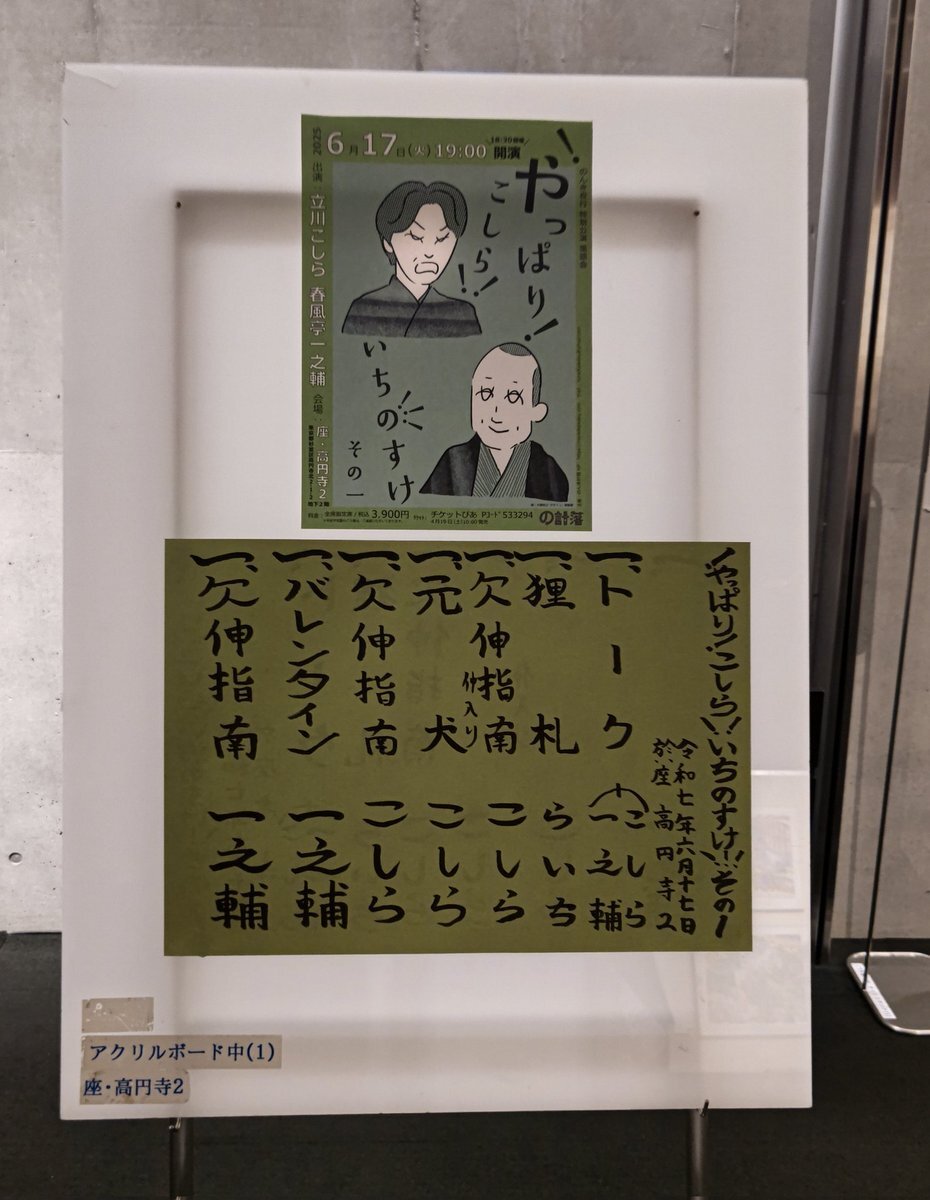 2025 6月17日(火)19:00 開演
やっぱり!
こしら!!
いちのすけ
その一
出演:立川こしら 春風亭一之輔 会場:座・高円寺2
地下2階
料金:全席指定席/税込 3,900円
チケットぴあ Pコード 533294
4月19日(土)10:00発売
の計落
やっぱり!こしら!!いちのすけ!!!その一
令和七年六月十七日
於、座高円寺2
一、トーク こしら 一之輔
一、狸札 らいち
一、欠伸指南 こしら
仲入り
一、元犬 こしら
一、欠伸指南 こしら
一、バレンタイン 一之輔
一、欠伸指南 一之輔
アクリルボード中(1)
座・高円寺2